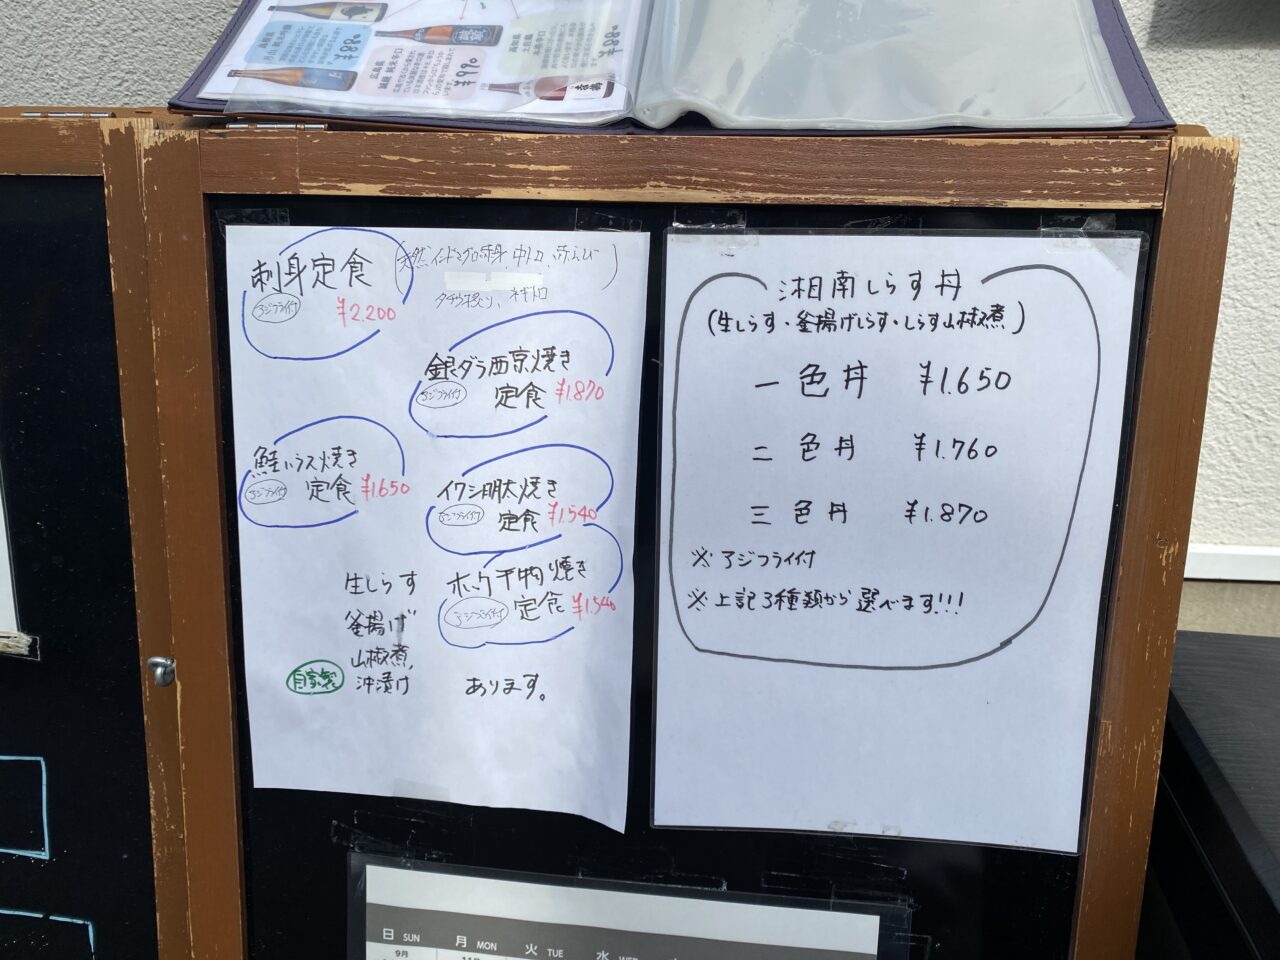 ¥880
広島県
¥990
高知県
¥880
刺身定食
アジフライ付
¥2,200
(天然インドマグロ赤身、中トロ、赤えび
ネギトロ
銀ダラ西京焼き
アジフライ付
定食 ¥1.870
鮭ハラス焼き
アジフライ付
定食 ¥1650
イワシ明太焼き
アジフライ付
定食 ¥1.540
ホッケ干物焼き
アジフライ付
定食 ¥1.540
生しらす
釜揚げ
山椒煮、
自家製
沖漬け
あります。
湘南しらす丼
(生しらす・釜揚げしらす・しらす山椒煮)
一色丼 ¥1.650
二色丼 ¥1.760
三色丼 ¥1.870
※アジフライ付
※上記3種類から選べます!!!
日 SUN 月 MON 火 TUE 水 WED
9月